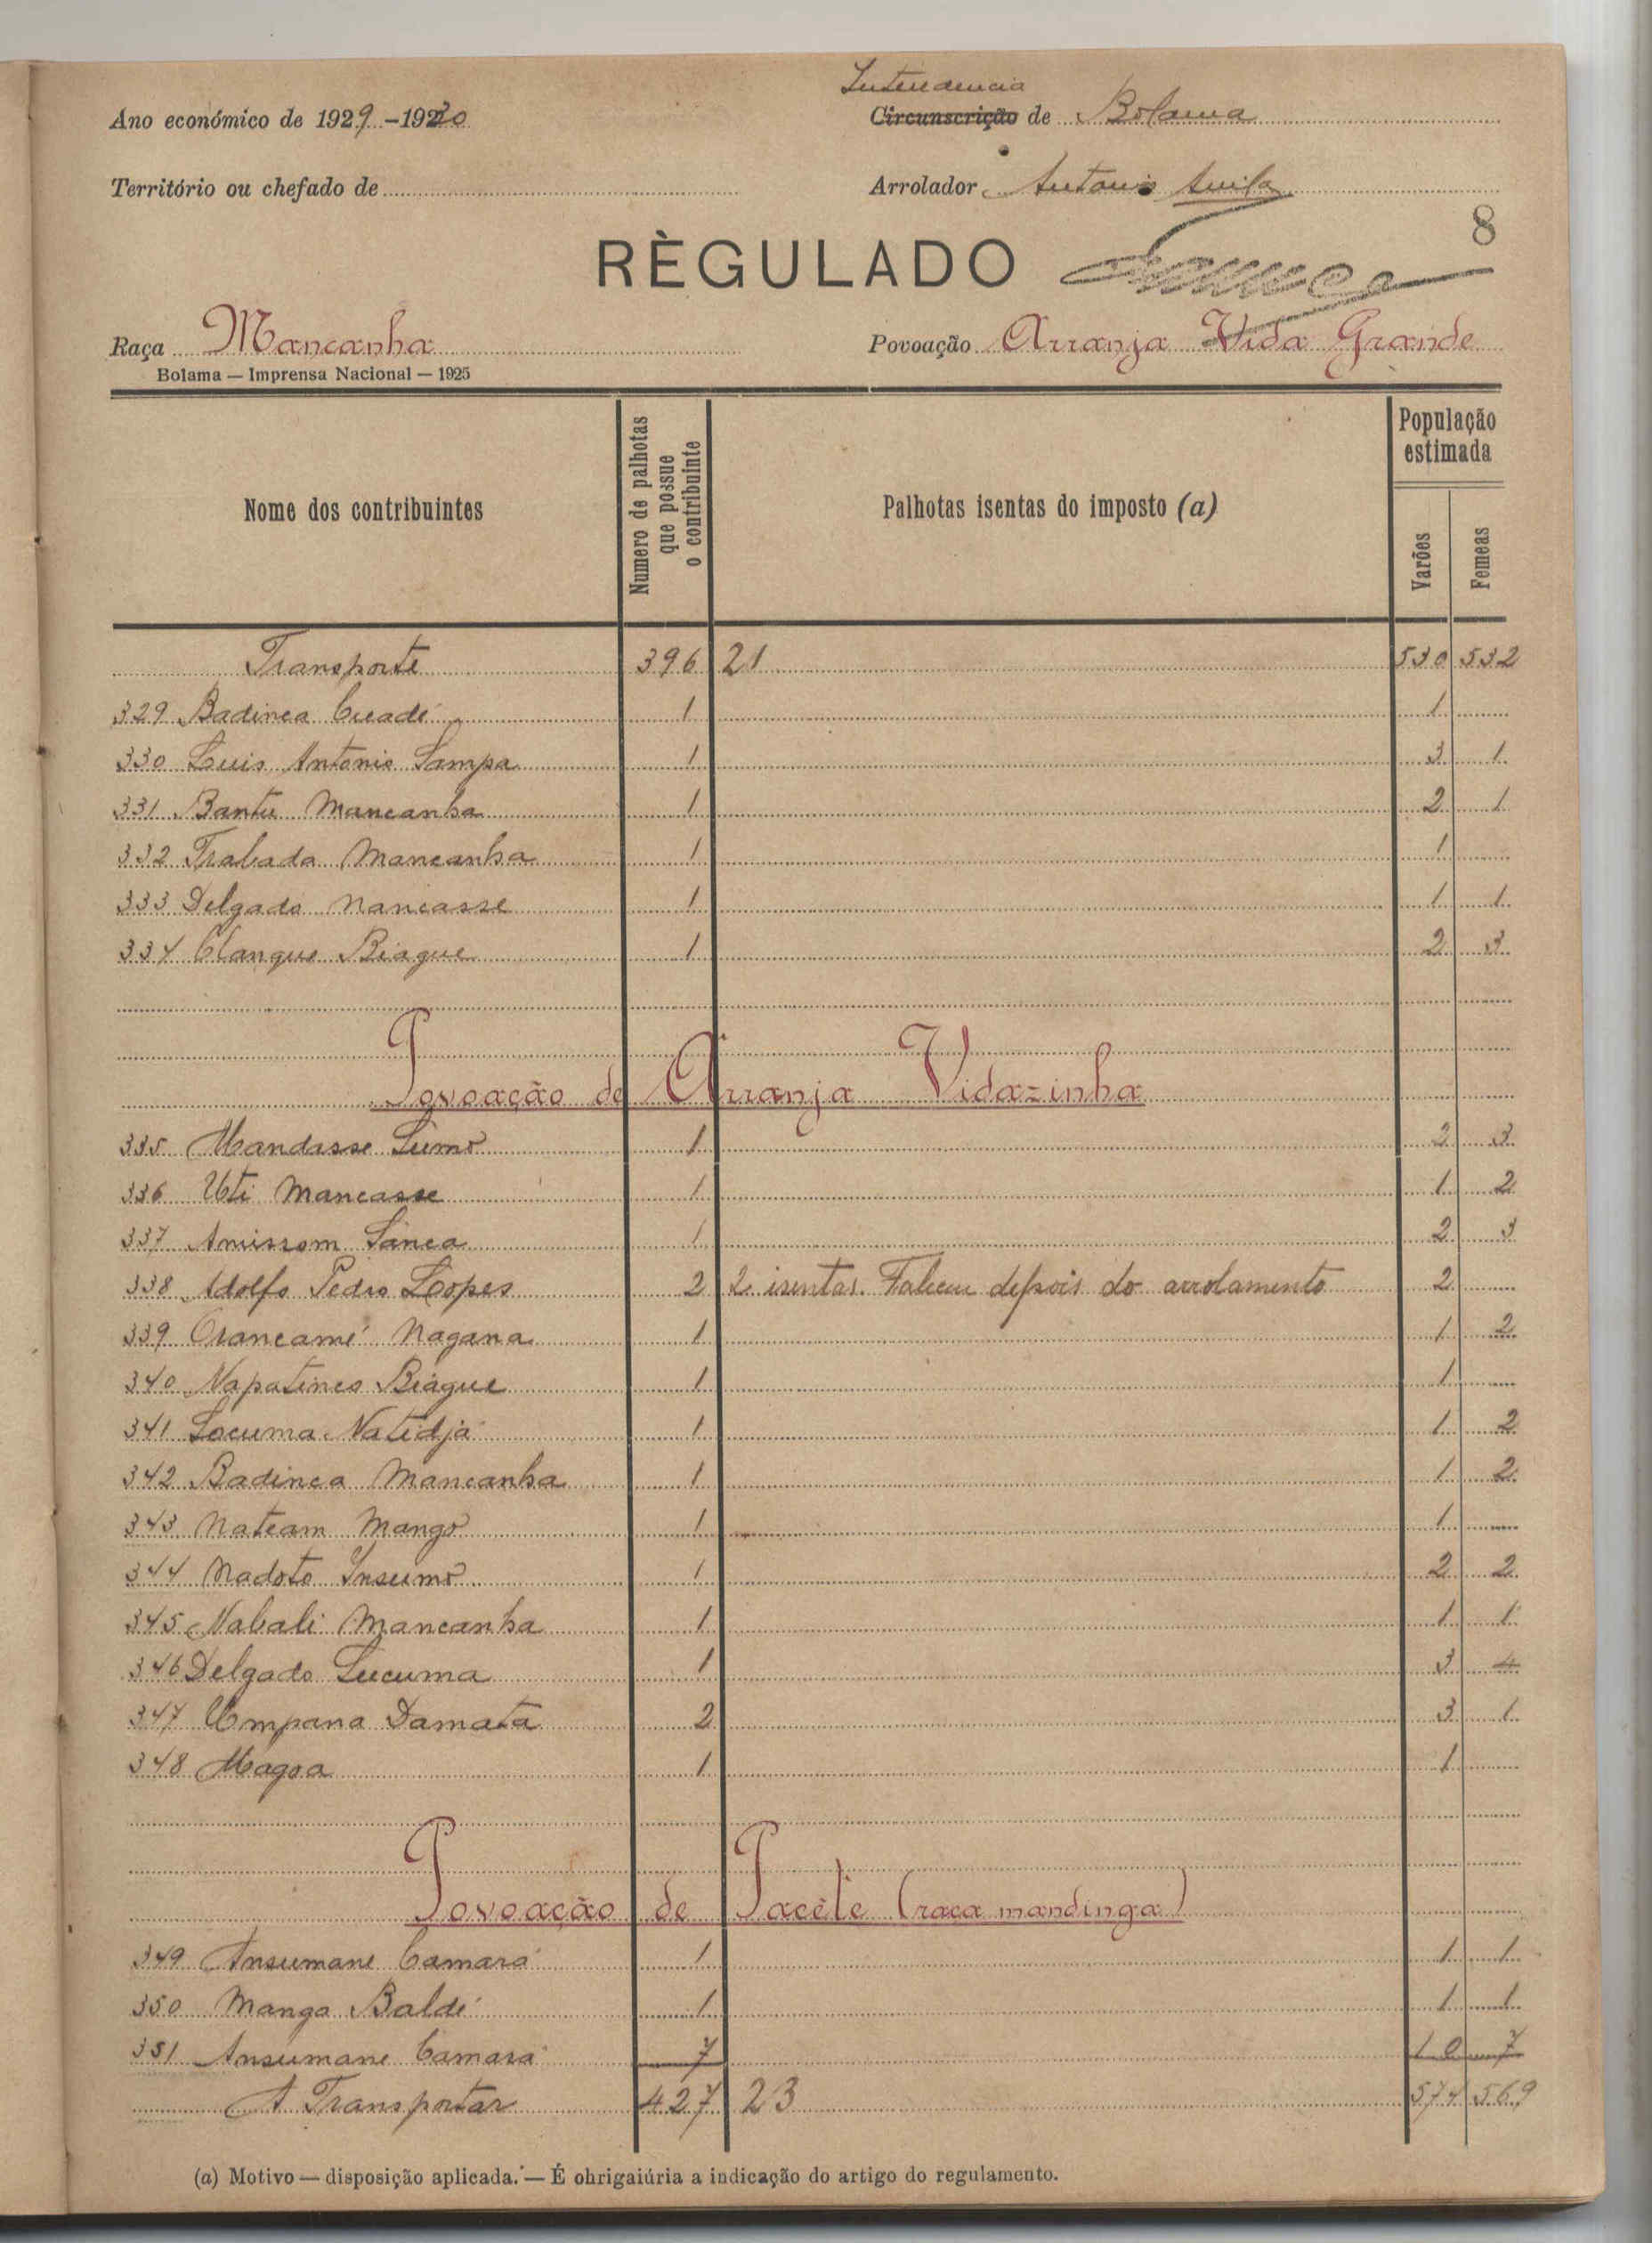 Intendencia
Ano económico de 1929-1930 Circunscrição de Bolama
Território ou chefado de Arrolador Antonio Avila
8
RÈGULADO
Raça Mancanha Povoação Arranja Vida Grande
Bolama — Imprensa Nacional — 1925
Nome dos contribuintes Numero de palhotas que possue o contribuinte Palhotas isentas do imposto (a) População estimada Varões Femeas
Transporte 396 21 530 532
329 Badinca Cuadé 1 1
330 Luis Antonio Sampa 1 3 1
331 Bantu Mancanha 1 2 1
332 Trabada Mancanha 1 1
333 Delgado Nancasse 1 1 1
334 Clangue Biague 1 2 3
Povoação de Arranja Vidazinha
335 Mandasse Sumo 1 2 3
336 Uti Mancasse 1 1 2
337 Amissom Sanca 1 2 3
338 Adolfo Pedro Lopes 2 2 isentas. Faleceu depois do arrolamento 2
339 Orancamé Nagana 1 1 2
340 Napatinco Biague 1 1
341 Locuma Natidjá 1 1 2
342 Badinca Mancanha 1 1 2
343 Nateam Mango 1 1
344 Nadoto Insumo 1 2 2
345 Nabali Mancanha 1 1 1
346 Delgado Lucuma 1 3 4
347 Umpana Damata 2 3 1
348 Magoa 1 1
Povoação de Pacête (raca mandinga)
349 Ansumane Camará 1 1 1
350 Manga Baldé 1 1 1
351 Ansumane Camará 7 10 7
A Transportar 427 23 574 569
(a) Motivo — disposição aplicada. — É ohrigaiúria a indicação do artigo do regulamento.